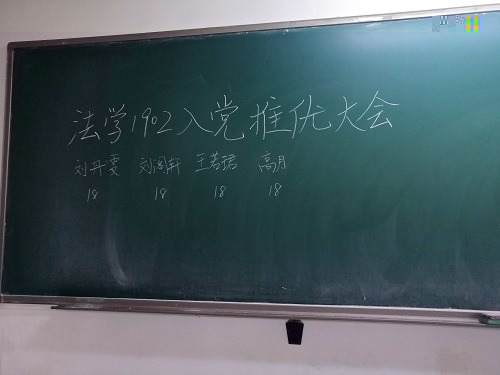 法学1902入党推优大会
刘丹雯 刘润轩 王若琪 高月
18 18 18 18